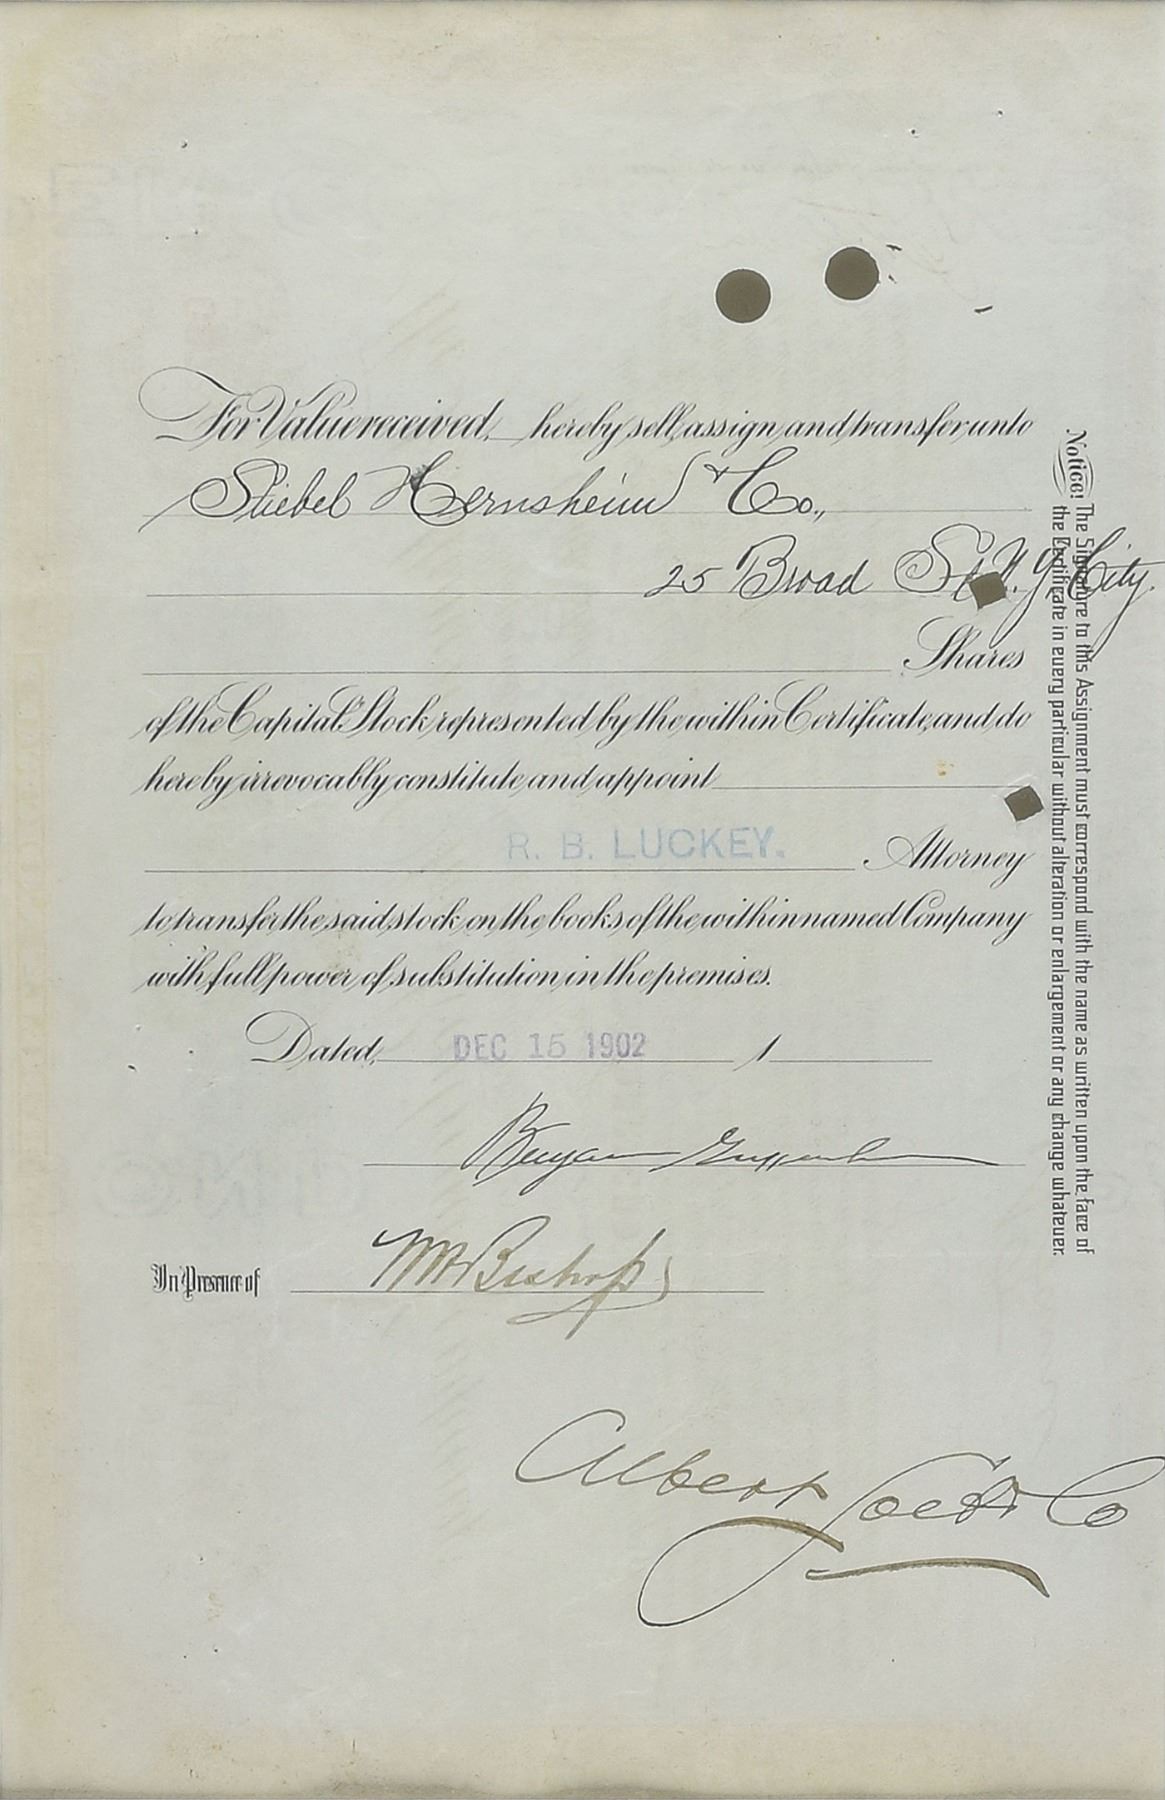 For Value received, hereby sell, assign and transfer unto
Stiebel Hernsheim & Co.,
25 Broad St N. Y. City.
Shares
of the Capital Stock represented by the within Certificate, and do
hereby irrevocably constitute and appoint
R. B. LUCKEY. Attorney
to transfer the said stock on the books of the within named Company
with full power of substitution in the premises.
Dated, DEC 15 1902 1
In Presence of Bishop
Albert & Co
Notice! The Signature to this Assignment must correspond with the name as written upon the face of
the Certificate in every particular without alteration or enlargement or any change whatever.